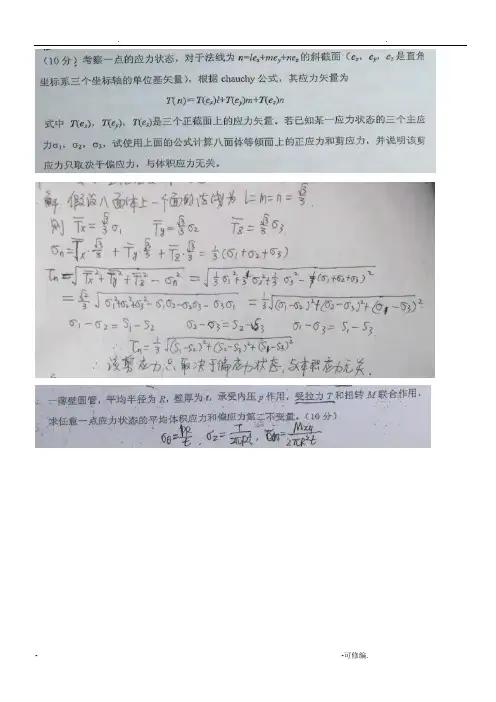 (10分) 考察一点的应力状态，对于法线为 n=le_x+me_y+ne_z 的斜截面（e_x，e_y，e_z 是直角
坐标系三个坐标轴的单位基矢量），根据 chauchy 公式，其应力矢量为
T(n)=T(e_x)l+T(e_y)m+T(e_z)n
式中 T(e_x)，T(e_y)，T(e_z)是三个正截面上的应力矢量。若已知某一应力状态的三个主应
力σ₁，σ₂，σ₃，试使用上面的公式计算八面体等倾面上的正应力和剪应力，并说明该剪
应力只取决于偏应力，与体积应力无关。
解 假设八面体上一个面的法线为 l=m=n=√3/3.
则 T̄x=√3/3σ₁ T̄y=√3/3σ₂ T̄z=√3/3σ₃
σn=T̄x·√3/3+T̄y·√3/3+T̄z·√3/3=1/3(σ₁+σ₂+σ₃)
τn=√(T̄x²+T̄y²+T̄z²-σn²)=√(1/3σ₁²+1/3σ₂²+1/3σ₃²-1/9(σ₁+σ₂+σ₃)²)
=√2/3√(σ₁²+σ₂²+σ₃²-σ₁σ₂-σ₂σ₃-σ₃σ₁) =1/3√((σ₁-σ₂)²+(σ₂-σ₃)²+(σ₁-σ₃)²)
σ₁-σ₂=S₁-S₂ σ₂-σ₃=S₂-S₃ σ₁-σ₃=S₁-S₃
∴τn=1/3√((S₁-S₂)²+(S₂-S₃)²+(S₁-S₃)²)
∴该剪应力只取决于偏应力状态,与体积应力无关.
一薄壁圆管，平均半径为 R，壁厚为 t，承受内压 p 作用，受拉力 T 和扭转 M 联合作用，
求任意一点应力状态的平均体积应力和偏应力第二不变量。(10 分)
σθ=pR/t，σz=T/2πRt，
- -可修编.